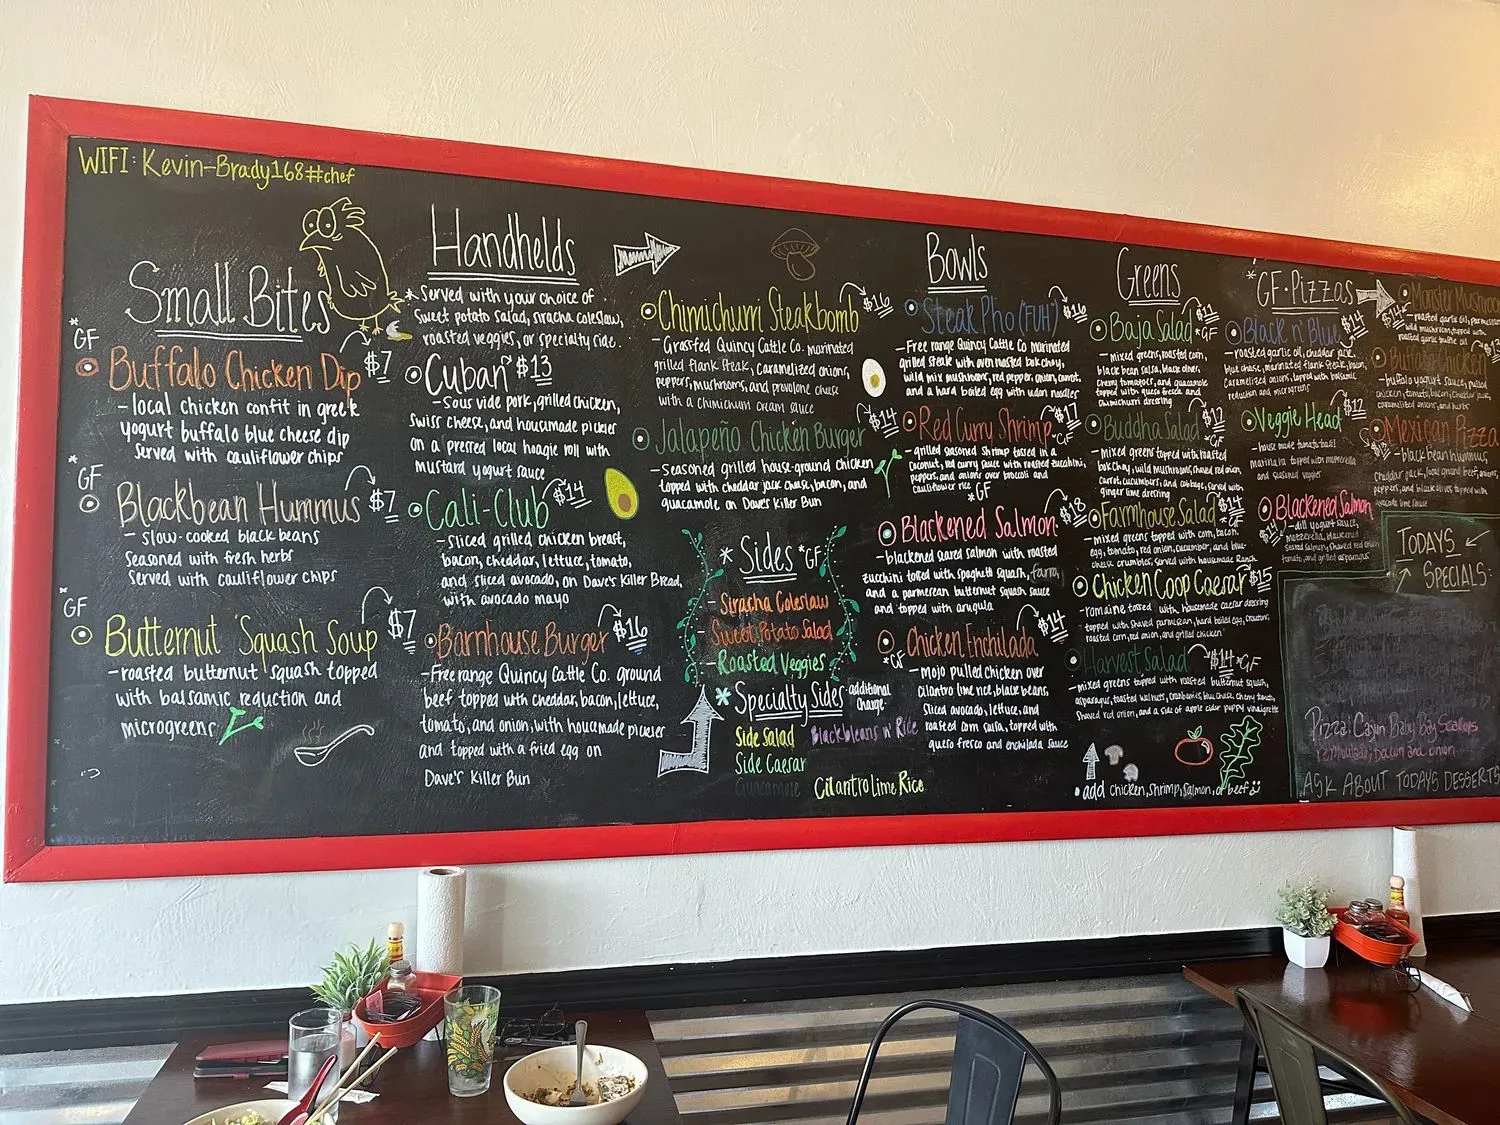 WIFI: Kevin-Brady168##chef
Small Bites
* GF
Buffalo Chicken Dip $7
- local chicken confit in greek
yogurt buffalo blue cheese dip
served with cauliflower chips
* GF
Blackbean Hummus $7
- slow-cooked black beans
seasoned with fresh herbs
served with cauliflower chips
* GF
Butternut Squash Soup $7
- roasted butternut squash topped
with balsamic reduction and
microgreens
Handhelds
* Served with your choice of
sweet potato salad, sriracha coleslaw,
roasted veggies, or specialty side.
Cuban $13
- sous vide pork, grilled chicken,
swiss cheese, and housemade pickles
on a pressed local hoagie roll with
mustard yogurt sauce
Cali-Club $14
- sliced grilled chicken breast,
bacon, cheddar, lettuce, tomato,
and sliced avocado, on Dave's Killer Bread,
with avocado mayo
Barnhouse Burger $16
- Free range Quincy Cattle Co. ground
beef topped with cheddar, bacon, lettuce,
tomato, and onion, with housemade pickles
and topped with a fried egg on
Dave's Killer Bun
Chimichurri Steakbomb $16
- Grassfed Quincy Cattle Co. marinated
grilled flank steak, caramelized onions,
peppers, mushrooms, and provolone cheese
with a chimichurri cream sauce
Jalapeño Chicken Burger $14
- seasoned grilled house-ground chicken
topped with cheddar jack cheese, bacon, and
guacamole on Dave's Killer Bun
* Sides *GF
- Siracha Coleslaw
- Sweet Potato Salad
- Roasted Veggies
* Specialty Sides additional
charge
Side Salad
Blackbeans n' Rice
Side Caesar
Guacamole
Cilantro Lime Rice
Bowls
Steak Pho (FUH) $16
- Free range Quincy Cattle Co marinated
grilled steak with oven roasted bok choy,
wild mix mushrooms, red pepper, onion, carrot,
and a hard boiled egg with udon noodles
Red Curry Shrimp $17
*GF
- grilled seasoned shrimp tossed in a
coconut, red curry sauce with roasted zucchini,
peppers, and onions over broccoli and
cauliflower rice
*GF
Blackened Salmon $18
- blackened seared salmon with roasted
zucchini tossed with spaghetti squash, farro,
and a parmesean butternut squash sauce
and topped with arugula
Chicken Enchilada $14
*GF
- mojo pulled chicken over
cilantro lime rice, black beans,
sliced avocado, lettuce, and
roasted corn salsa, topped with
queso fresco and enchilada sauce
Greens
Baja Salad *GF
- mixed greens, roasted corn,
black bean salsa, black olives,
cherry tomatoes, and guacamole
topped with queso fresco and
chimichurri dressing
Buddha Salad $12
*GF
- mixed greens topped with roasted
bok choy, wild mushrooms, shaved red onion,
carrot, cucumbers, and cabbage, served with
ginger lime dressing
Farmhouse Salad $14
*GF
- mixed greens topped with corn, bacon,
egg, tomato, red onion, cucumber, and blue
cheese crumbles, served with housemade Ranch
Chicken Coop Caesar $15
- romaine tossed with housemade caesar dressing
topped with shaved parmesan, hard boiled egg, croutons,
roasted corn, red onion, and grilled chicken
Harvest Salad $14 *GF
- mixed greens topped with roasted butternut squash,
asparagus, toasted walnuts, cranberries, blue cheese, cherry tomato,
shaved red onion, and a side of apple cider poppy vinaigrette
• add chicken, shrimp, salmon, or beef
* GF · Pizzas
Black n' Blue $14
- roasted garlic oil, cheddar jack,
blue cheese, marinated flank steak, bacon,
caramelized onions, topped with balsamic
reduction and microgreens
Veggie Head $12
- house made tomato basil
marinara topped with mozzerella
and seasoned veggies
Blackened Salmon
$14
- dill yogurt sauce,
mozzerella, blackened
seared salmon, shaved red onion
and grilled asparagus
Monster Mushroom
$14
- roasted garlic oil, parmesan
wild mushroom, topped with
roasted garlic truffle oil
Buffalo Chicken $13
- buffalo yogurt sauce, pulled
chicken, tomato, bacon, cheddar jack,
caramelized onions, and herbs
Mexican Pizza
- black bean hummus,
cheddar jack, local ground beef, onions,
peppers, and black olives topped with
avocado lime sauce
TODAYS
SPECIALS:
Pizza: Cajun Baby Bay Scallops
remoulade, bacon and onion
ASK ABOUT TODAYS DESSERTS